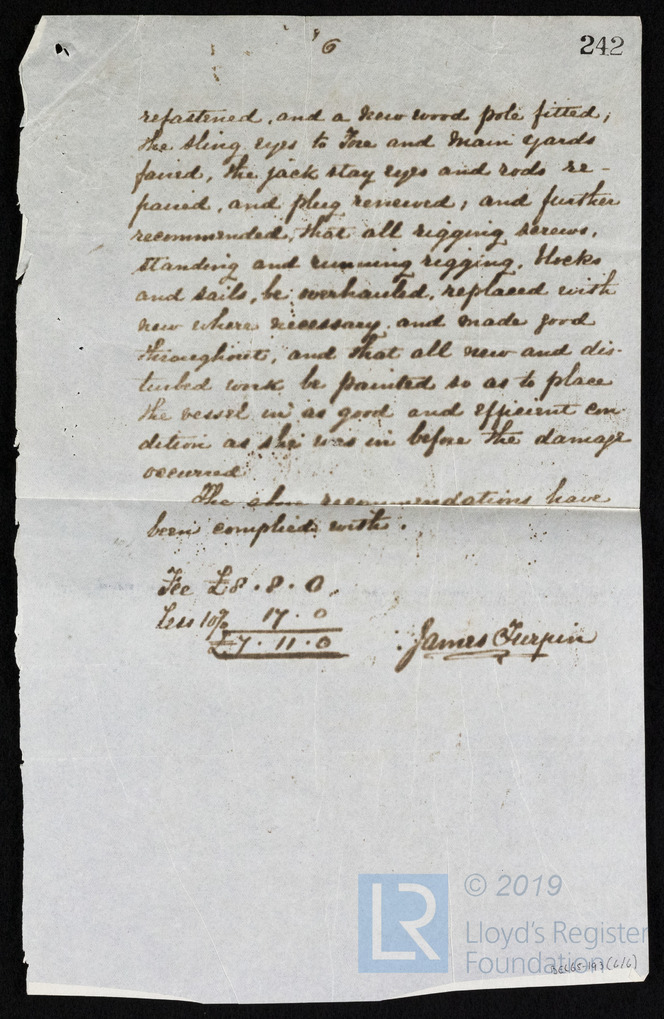 6
242
refastened, and a new wood pole fitted;
the sling eyes to Fore and Main yards
faired, the jack stay eyes and rods re-
paired, and plug renewed; and further
recommended, that all rigging screws,
standing and running rigging, blocks
and sails, be overhauled, replaced with
new where necessary, and made good
throughout, and that all new and dis-
turbed work be painted so as to place
the vessel in as good and efficient con-
dition as she was in before the damage
occurred
The above recommendations have
been complied with.
Fee £8.8.0
Less 10% 17.0
£7.11.0
James Turpin
LR
© 2019
Lloyd's Register
Foundation
(6/6)